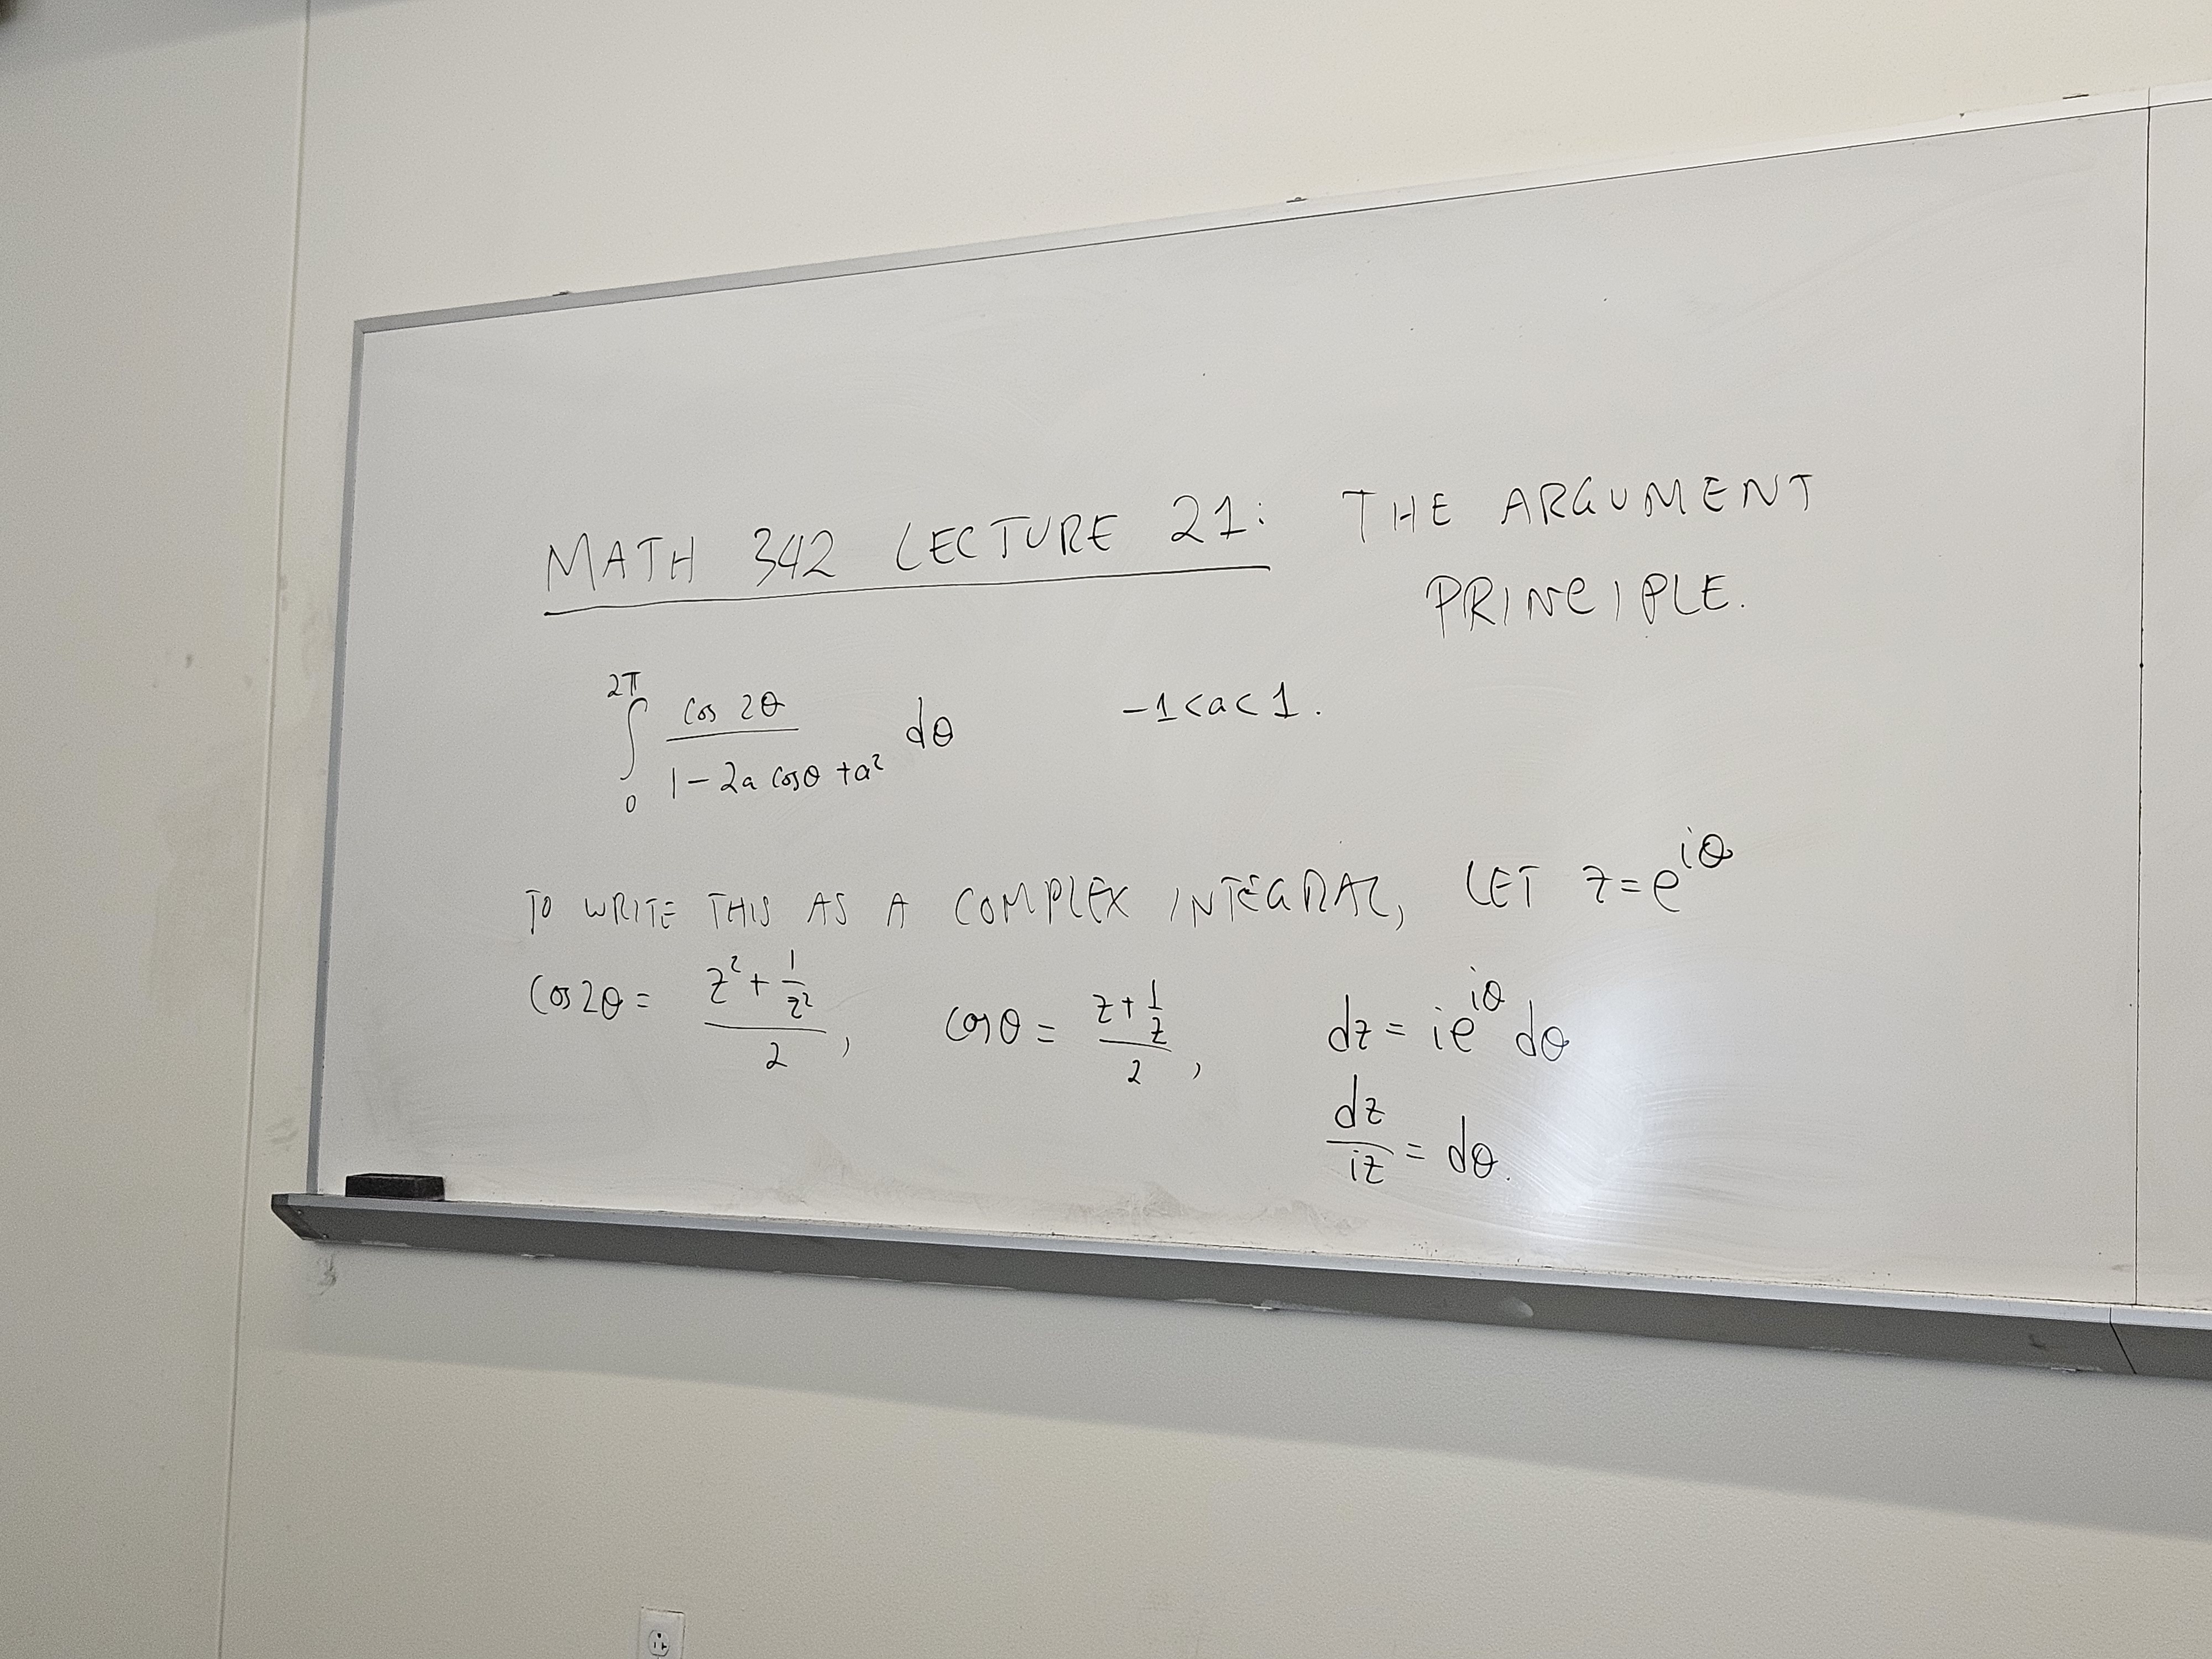 MATH 342 LECTURE 21: THE ARGUMENT
PRINCIPLE.
∫₀^2π cos 2θ / (1 - 2a cosθ + a²) dθ    -1 < a < 1.
TO WRITE THIS AS A COMPLEX INTEGRAL, LET z = e^iθ
cos 2θ = (z² + 1/z²) / 2, cos θ = (z + 1/z) / 2, dz = ie^iθ dθ
dz/iz = dθ.